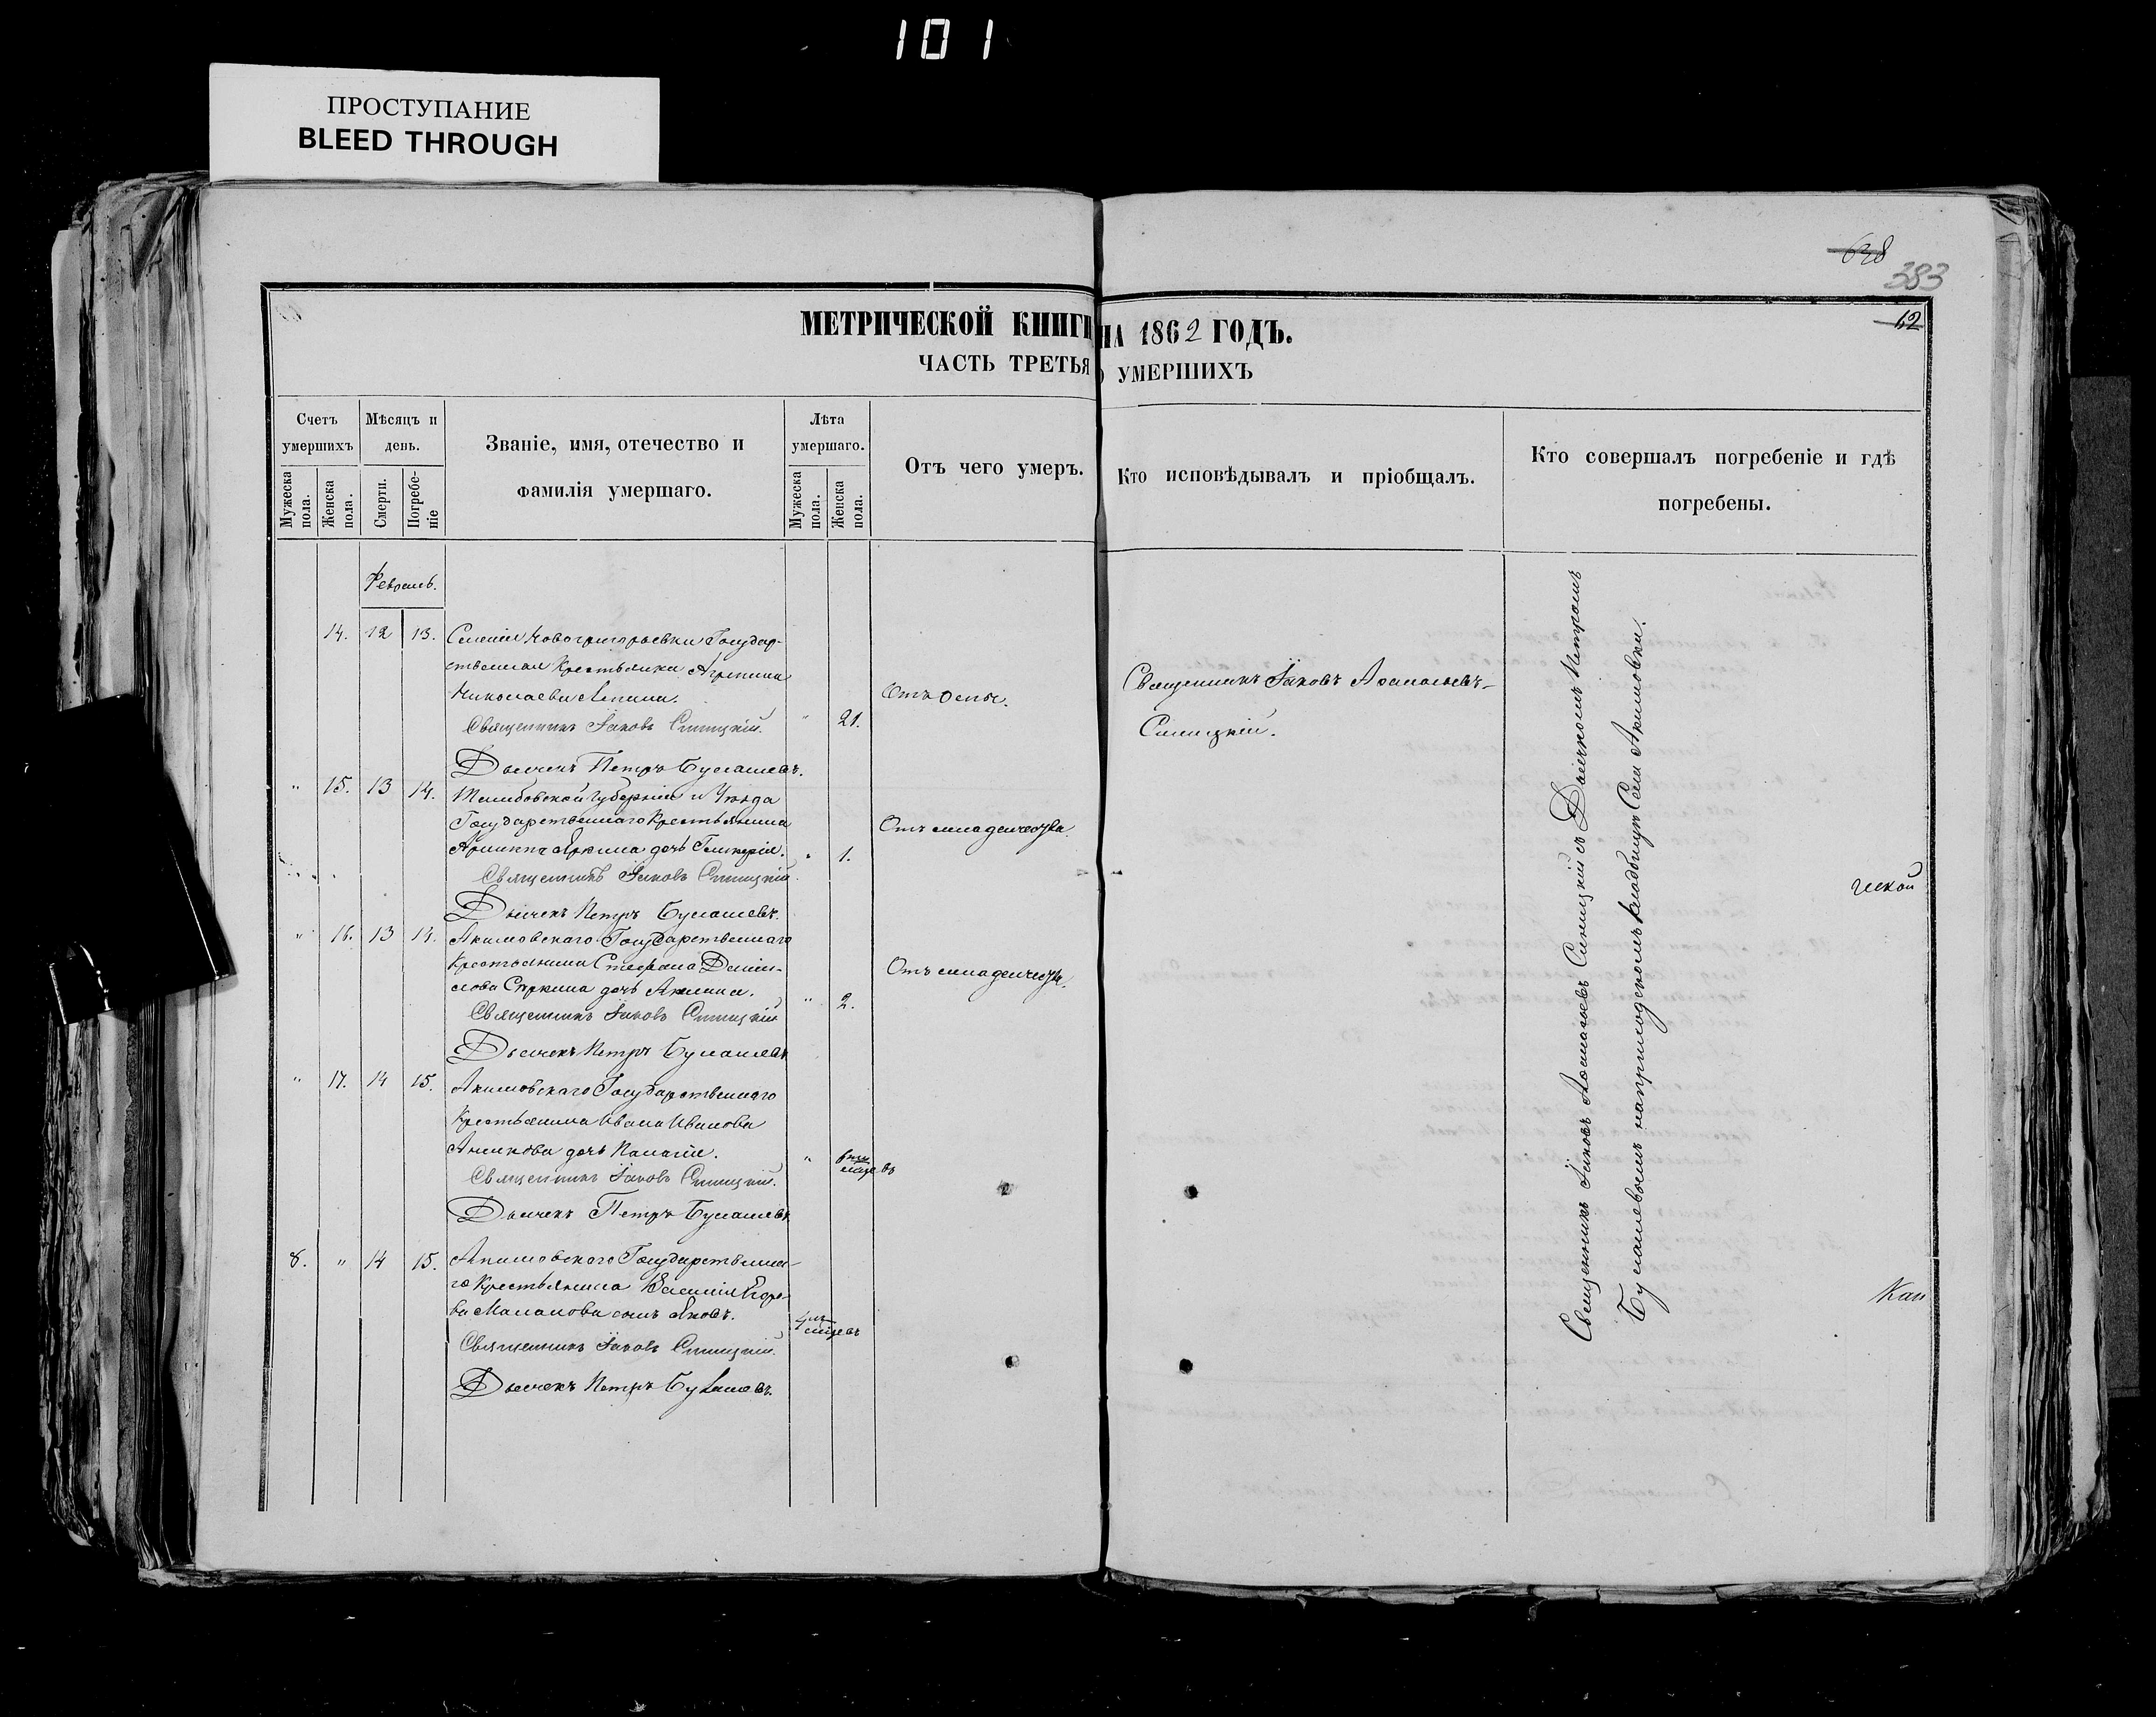 101
ПРОСТУПАНИЕ
BLEED THROUGH
638
383
12
МЕТРИЧЕСКОЙ КНИГИ НА 1862 ГОДЪ.
ЧАСТЬ ТРЕТЬЯ О УМЕРШИХЪ
Счетъ умершихъ
Мужеска пола.
Женска пола.
Мѣсяцъ и день.
Смерти.
Погребеніе
Званіе, имя, отечество и
фамилія умершаго.
Лѣта умершаго.
Мужеска пола.
Женска пола.
Отъ чего умеръ.
Кто исповѣдывалъ и пріобщалъ.
Кто совершалъ погребеніе и гдѣ
погребены.
Февраль.
14. 12 13. Селенія Новогригорьевки Государ-
ственная Крестьянка Агрепина
Николаева
Отъ Оспы.
Священникъ Іаковъ Синицкій. " 21.
Священникъ Іаковъ Афанасьевъ
Синицкій.
Дьячекъ Петръ Булашевъ.
" 15. 13 14. Тамбовской Губерніи и Уѣзда
Государственнаго Крестьянина
дочь Гликерія. " 1.
Отъ младенчества.
Священникъ Іаковъ Синицкій
Дьячекъ Петръ Булашевъ.
" 16. 13 14. Акимовскаго Государственнаго
Крестьянина Стефана Дани-
лова дочь Акилина. " 2.
Отъ младенчества.
Священникъ Іаковъ Синицкій
Дьячекъ Петръ Булашевъ
" 17. 14 15. Акимовскаго Государственнаго
Крестьянина Ивана Иванова
Аникова дочь Палагія. " 6ти месцевъ
Священникъ Іаковъ Синицкій.
Дьячекъ Петръ Булашевъ
8. " 14 15. Акимовскаго Государственна-
го Крестьянина Василія Егоро-
ва Маланова сынъ Яковъ. 4хъ месцевъ
Священникъ Іаковъ Синицкій.
Дьячекъ Петръ Булашевъ.
Священникъ Іаковъ Афанасьевъ Синицкій съ Дьячкомъ Петромъ
Булашевымъ на приходскомъ кладбищѣ Села Акимовки.
ческой
Кан